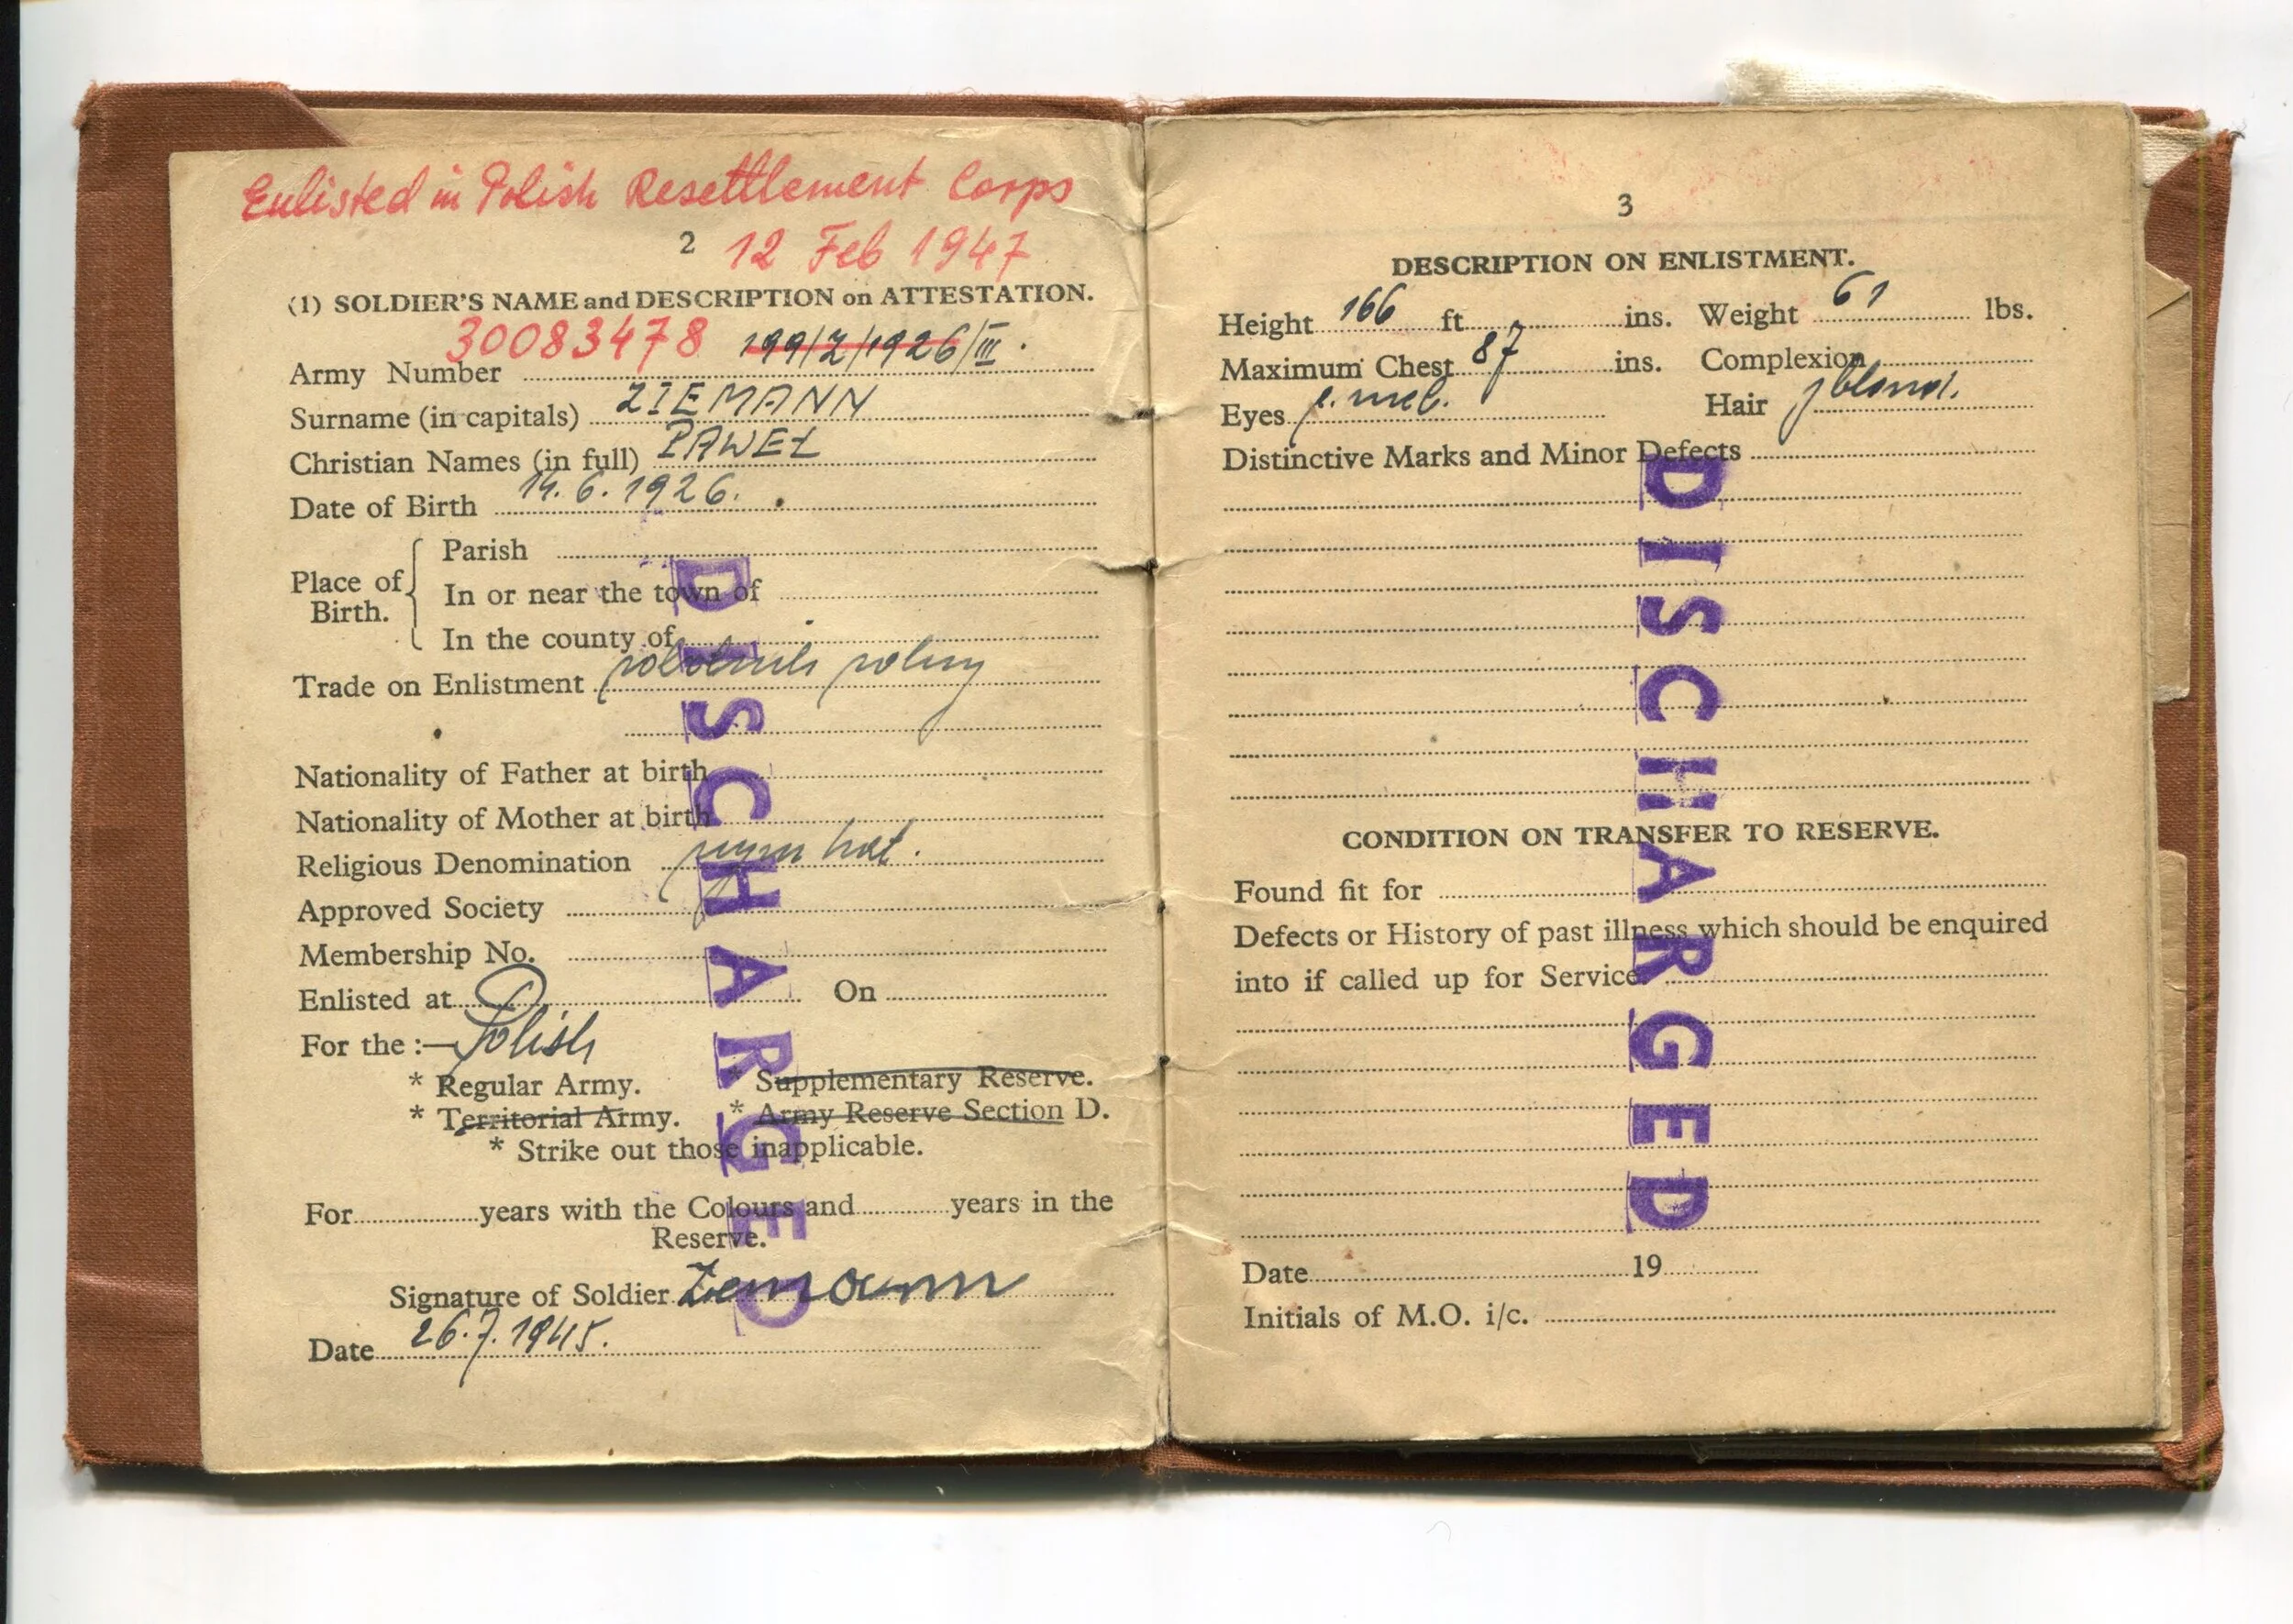 Enlisted in Polish Resettlement Corps
2 12 Feb 1947
(1) SOLDIER'S NAME and DESCRIPTION on ATTESTATION.
30083478 199/2/1926/III.
Army Number
Surname (in capitals) ZIEMANN
Christian Names (in full) PAWEŁ
Date of Birth 14.6.1926.
Place of Birth.
Parish
In or near the town of
In the county of
Trade on Enlistment robotnik rolny
Nationality of Father at birth
Nationality of Mother at birth
Religious Denomination rzym kat.
Approved Society
Membership No.
Enlisted at On
For the :— Polish
* Regular Army. * Supplementary Reserve.
* Territorial Army. * Army Reserve Section D.
* Strike out those inapplicable.
For years with the Colours and years in the
Reserve.
Signature of Soldier Ziemann
Date 26.7.1945.
DISCHARGED
3
DESCRIPTION ON ENLISTMENT.
Height 166 ft. ins. Weight 61 lbs.
Maximum Chest 87 ins. Complexion
Eyes nieb. Hair blond.
Distinctive Marks and Minor Defects
CONDITION ON TRANSFER TO RESERVE.
Found fit for
Defects or History of past illness which should be enquired
into if called up for Service
Date 19
Initials of M.O. i/c.
DISCHARGED